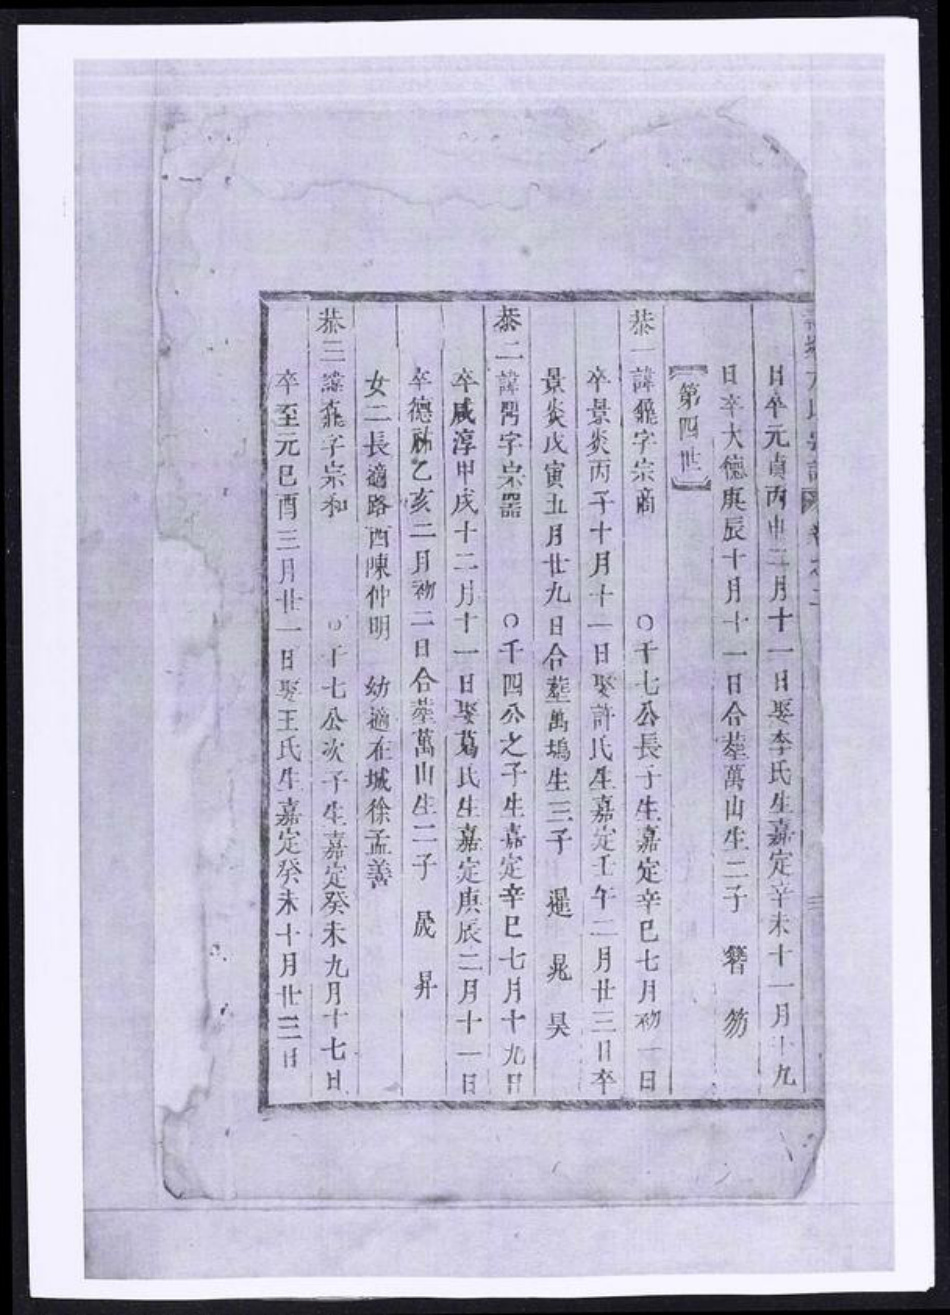 日卒元貞丙申二月十一日娶李氏生嘉定辛未十一月十九
日卒大德庚辰十月十一日合塟萬山生二子 簪 笏
【第四世】
恭一諱 字宗商 ○千七公長子生嘉定辛巳七月初一日
卒景炎丙子十月十一日娶許氏生嘉定壬午二月廿三日卒
景炎戊寅五月廿九日合塟萬塢生三子 暹 晁 昊
恭二諱 字宗器 ○千四公之子生嘉定辛巳七月十九日
卒咸淳甲戌十二月十一日娶葛氏生嘉定庚辰二月十一日
卒德祐乙亥二月初二日合塟萬山生二子 晟 昇
女二長適路西陳仲明 幼適在城徐孟善
恭三諱 字宗和 ○千七公次子生嘉定癸未九月十七日
卒至元己酉三月廿一日娶王氏生嘉定癸未十月廿三日